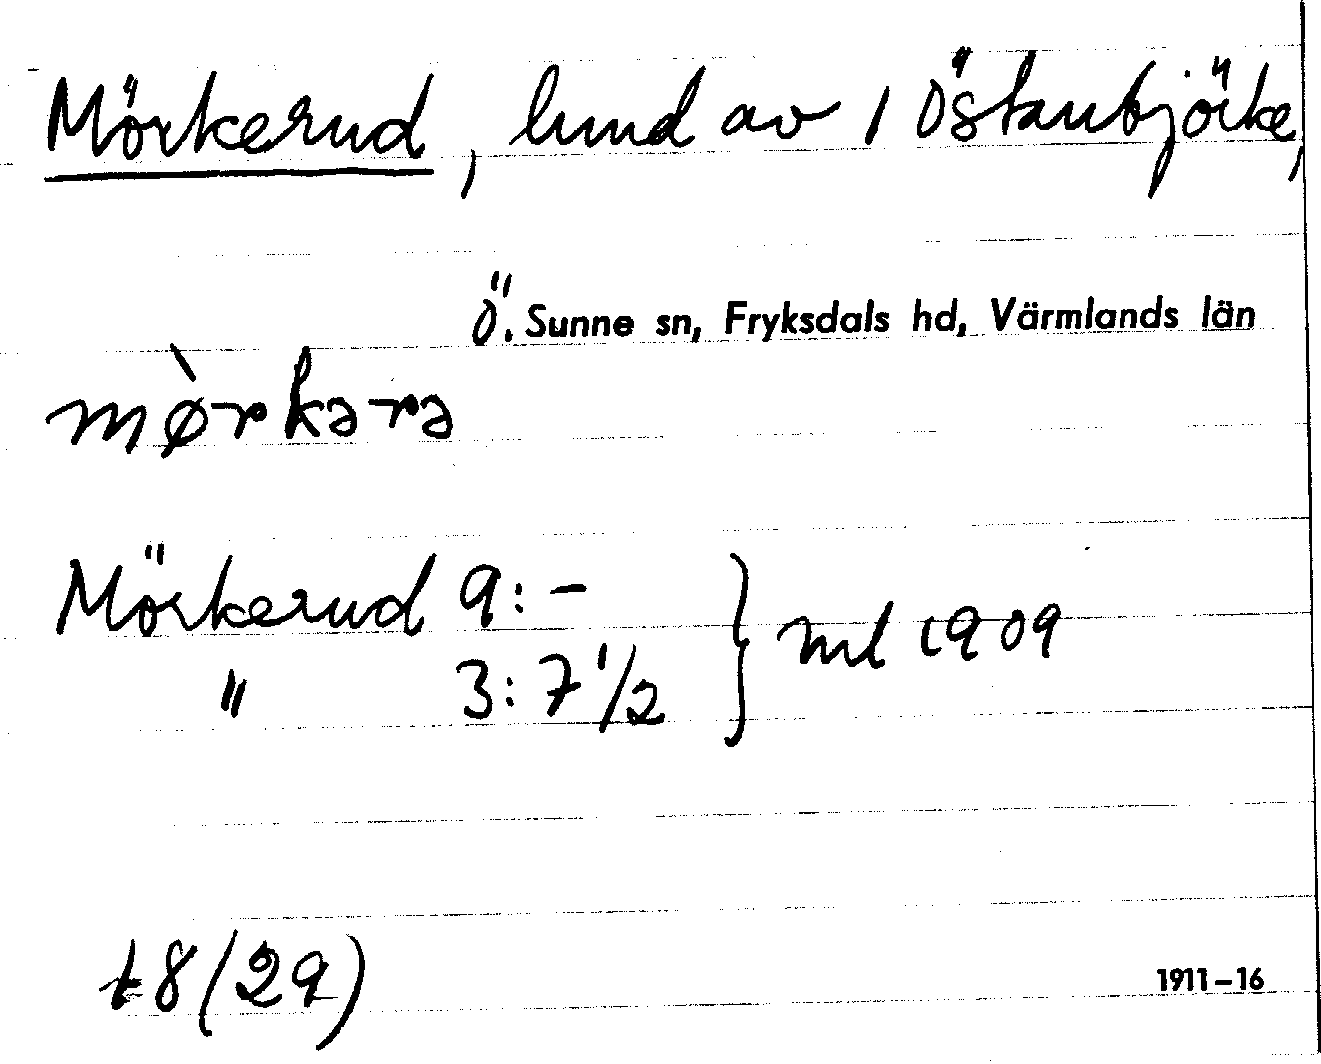 Mörkerud, lund av 1 Östanbjörke,
Ö. Sunne sn, Fryksdals hd, Värmlands län
mø̀rkərə
Mörkerud 9:- } ml 1909
" 3:7 1/2
t8(29)
1911–16